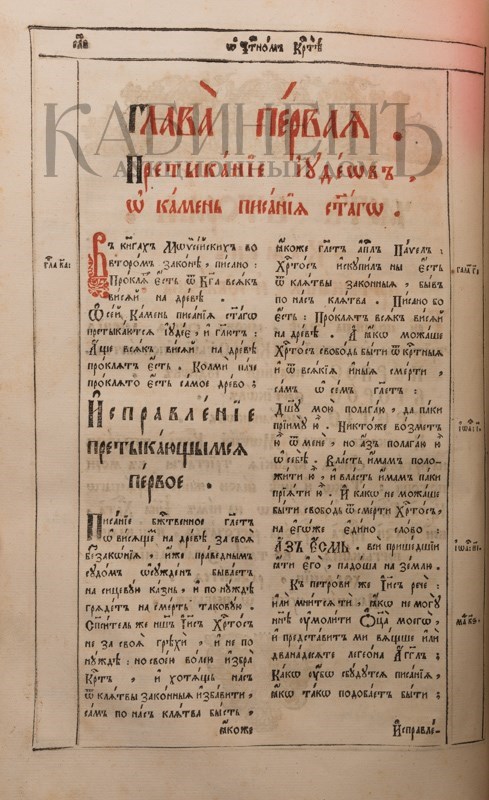 ѿ Чⷭ҇тномъ Крⷭ҇тѣ
КАБИНЕТЪ
АУКЦИОННЫЙ ДОМ
Глава̀ пе́рваѧ .
Претыка́нїе іꙋде́ѡвъ ,
ѿ ка́мень писа́нїѧ ст҃а́гѡ .
Въ кни́гахъ Мѡѷсе́йскихъ во
второ́мъ зако́нѣ , пи́сано :
Про́клѧ́тъ є҆́сть ѿ Бг҃а всѧ́къ
висѧ́й на дре́вѣ .
Ѡ се́й Ка́мень писа́нїѧ ст҃а́гѡ
претыка́ютсѧ і҆ꙋде́є , и҆ гл҃ютъ :
А҆́ще всѧ́къ висѧ́й на дре́вѣ
про́клѧтъ є҆́сть . Ко́лми па́че
про́клѧто є҆́сть само́е дре́во :
И҆справле́нїе
претыка́ющымсѧ
пе́рвое .
Писа́нїе бж҃е́ственное гл҃етъ
ѡ висѧ́щемъ на дре́вѣ за своѧ̑
беззакѡ́нїѧ , и҆́же пра́веднымъ
сꙋдо́мъ ѡ҆сꙋжде́нъ . быва́етъ
на сицевꙋ́ю ка́знь , и҆ по нꙋ́жде
грѧде́тъ на сме́рть такову́ю .
Сп҃си́тель же на́шъ І҆и҃съ Хрⷭ҇то́съ
не за своѧ̑ грѣхѝ , и҆ не по
нꙋ́жде : но свое́ю во́лею и҆збра̀
Крⷭ҇тъ , и҆ хотѧ́щъ на́съ
ѿ клѧ́твы зако́нныѧ и҆зба́вити ,
са́мъ по на́съ клѧ́тва бы́сть ,
ꙗ҆́коже
ꙗ҆́коже гл҃етъ а҆пⷭ҇лъ Па́велъ :
Хрⷭ҇то́съ и҆скупи́лъ ны̀ є҆́сть
ѿ клѧ́твы зако́нныѧ , бы́въ
по на́съ клѧ́тва . Пи́сано бо
є҆́сть : Про́клѧтъ всѧ́къ висѧ́й
на дре́вѣ . А҆ ꙗ҆́кѡ можа́ше
Хрⷭ҇то́съ свобо́дь бы́ти ѿ крⷭ҇тныѧ
и҆ ѿ всѧ́кїѧ и҆ны́ѧ сме́рти ,
са́мъ ѡ҆ се́мъ гл҃етъ :
Дш҃ꙋ мою̀ полага́ю , да па́ки
прїимꙋ̀ ю҆̀ . Никто́же во́зметъ
ю҆̀ ѿ менѐ , но а҆́зъ полага́ю ю҆̀
ѿ себѐ . Вла́сть и҆́мамъ поло-
жи́ти ю҆̀ , и҆ вла́сть и҆́мамъ па́ки
прїѧ́ти ю҆̀ . И҆ ка́кѡ не можа́ше
бы́ти свобо́дь ѿ сме́рти Хрⷭ҇то́съ ,
на є҆гѡ́же є҆ди́но сло́во :
А҆́ЗЪ Є҆́СМЬ . всѝ прише́дшїи
ѧ҆́ти є҆го̀ , падо́ша на зе́млю .
Къ петро́ви же І҆и҃съ речѐ :
и҆лѝ мни́тсѧ тѝ , ꙗ҆́кѡ не могꙋ̀
нн҃ѣ ᲂу҆моли́ти Ѻ҆ц҃а̀ моегѡ̀ ,
и҆ предста́витъ мѝ вѧ́щше и҆лѝ
двана́десѧте легеѡ́на А҆́гг҃лъ ;
Ка́кѡ ᲂу҆̀бо сбꙋ́дꙋтсѧ писа̑нїѧ ,
ꙗ҆́кѡ та́кѡ подоба́етъ бы́ти ;
И҆справле́-